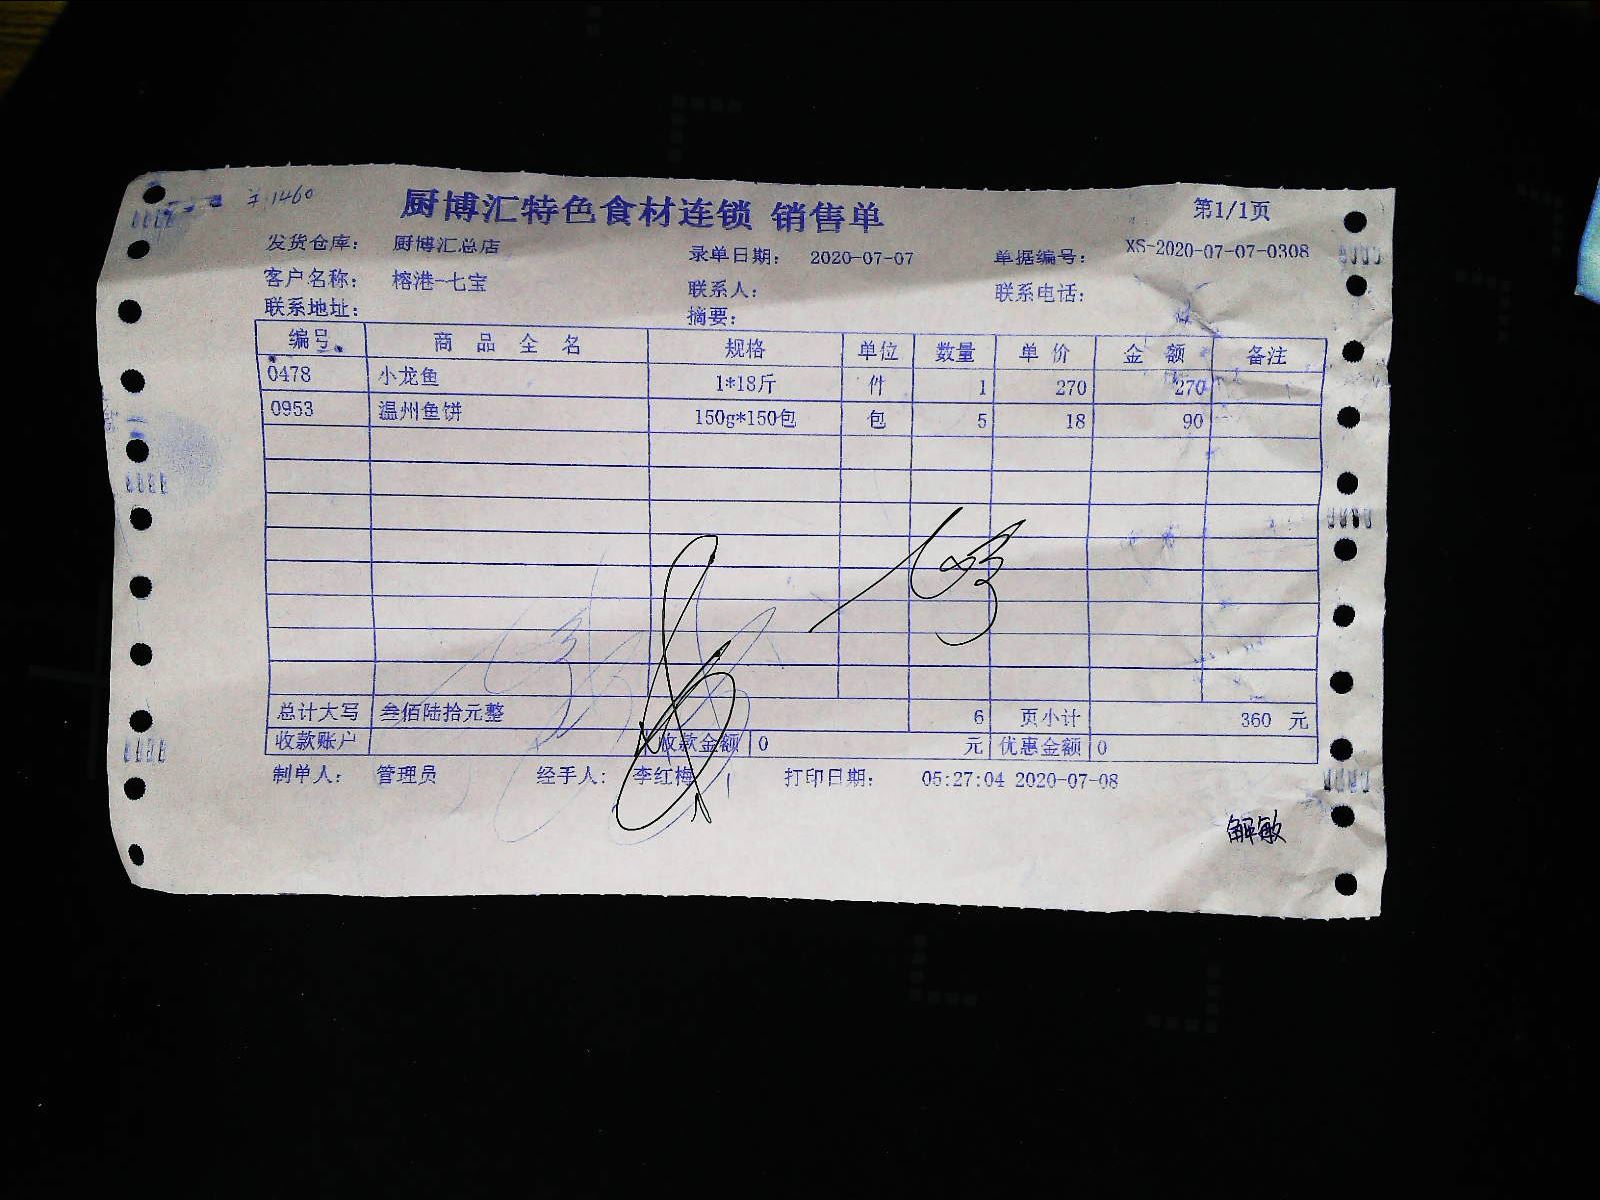 ¥:1460
厨博汇特色食材连锁 销售单 第1/1页
发货仓库: 厨博汇总店 录单日期: 2020-07-07 单据编号: XS-2020-07-07-0308
客户名称: 榕港-七宝 联系人: 联系电话:
联系地址: 摘要:
编号 商品全名 规格 单位 数量 单价 金额 备注
0478 小龙鱼 1*18斤 件 1 270 270
0953 温州鱼饼 150g*150包 包 5 18 90
总计大写 叁佰陆拾元整 6 页小计 360 元
收款账户 收款金额 0 元 优惠金额 0
制单人: 管理员 经手人: 李红梅 打印日期: 05:27:04 2020-07-08
解敏